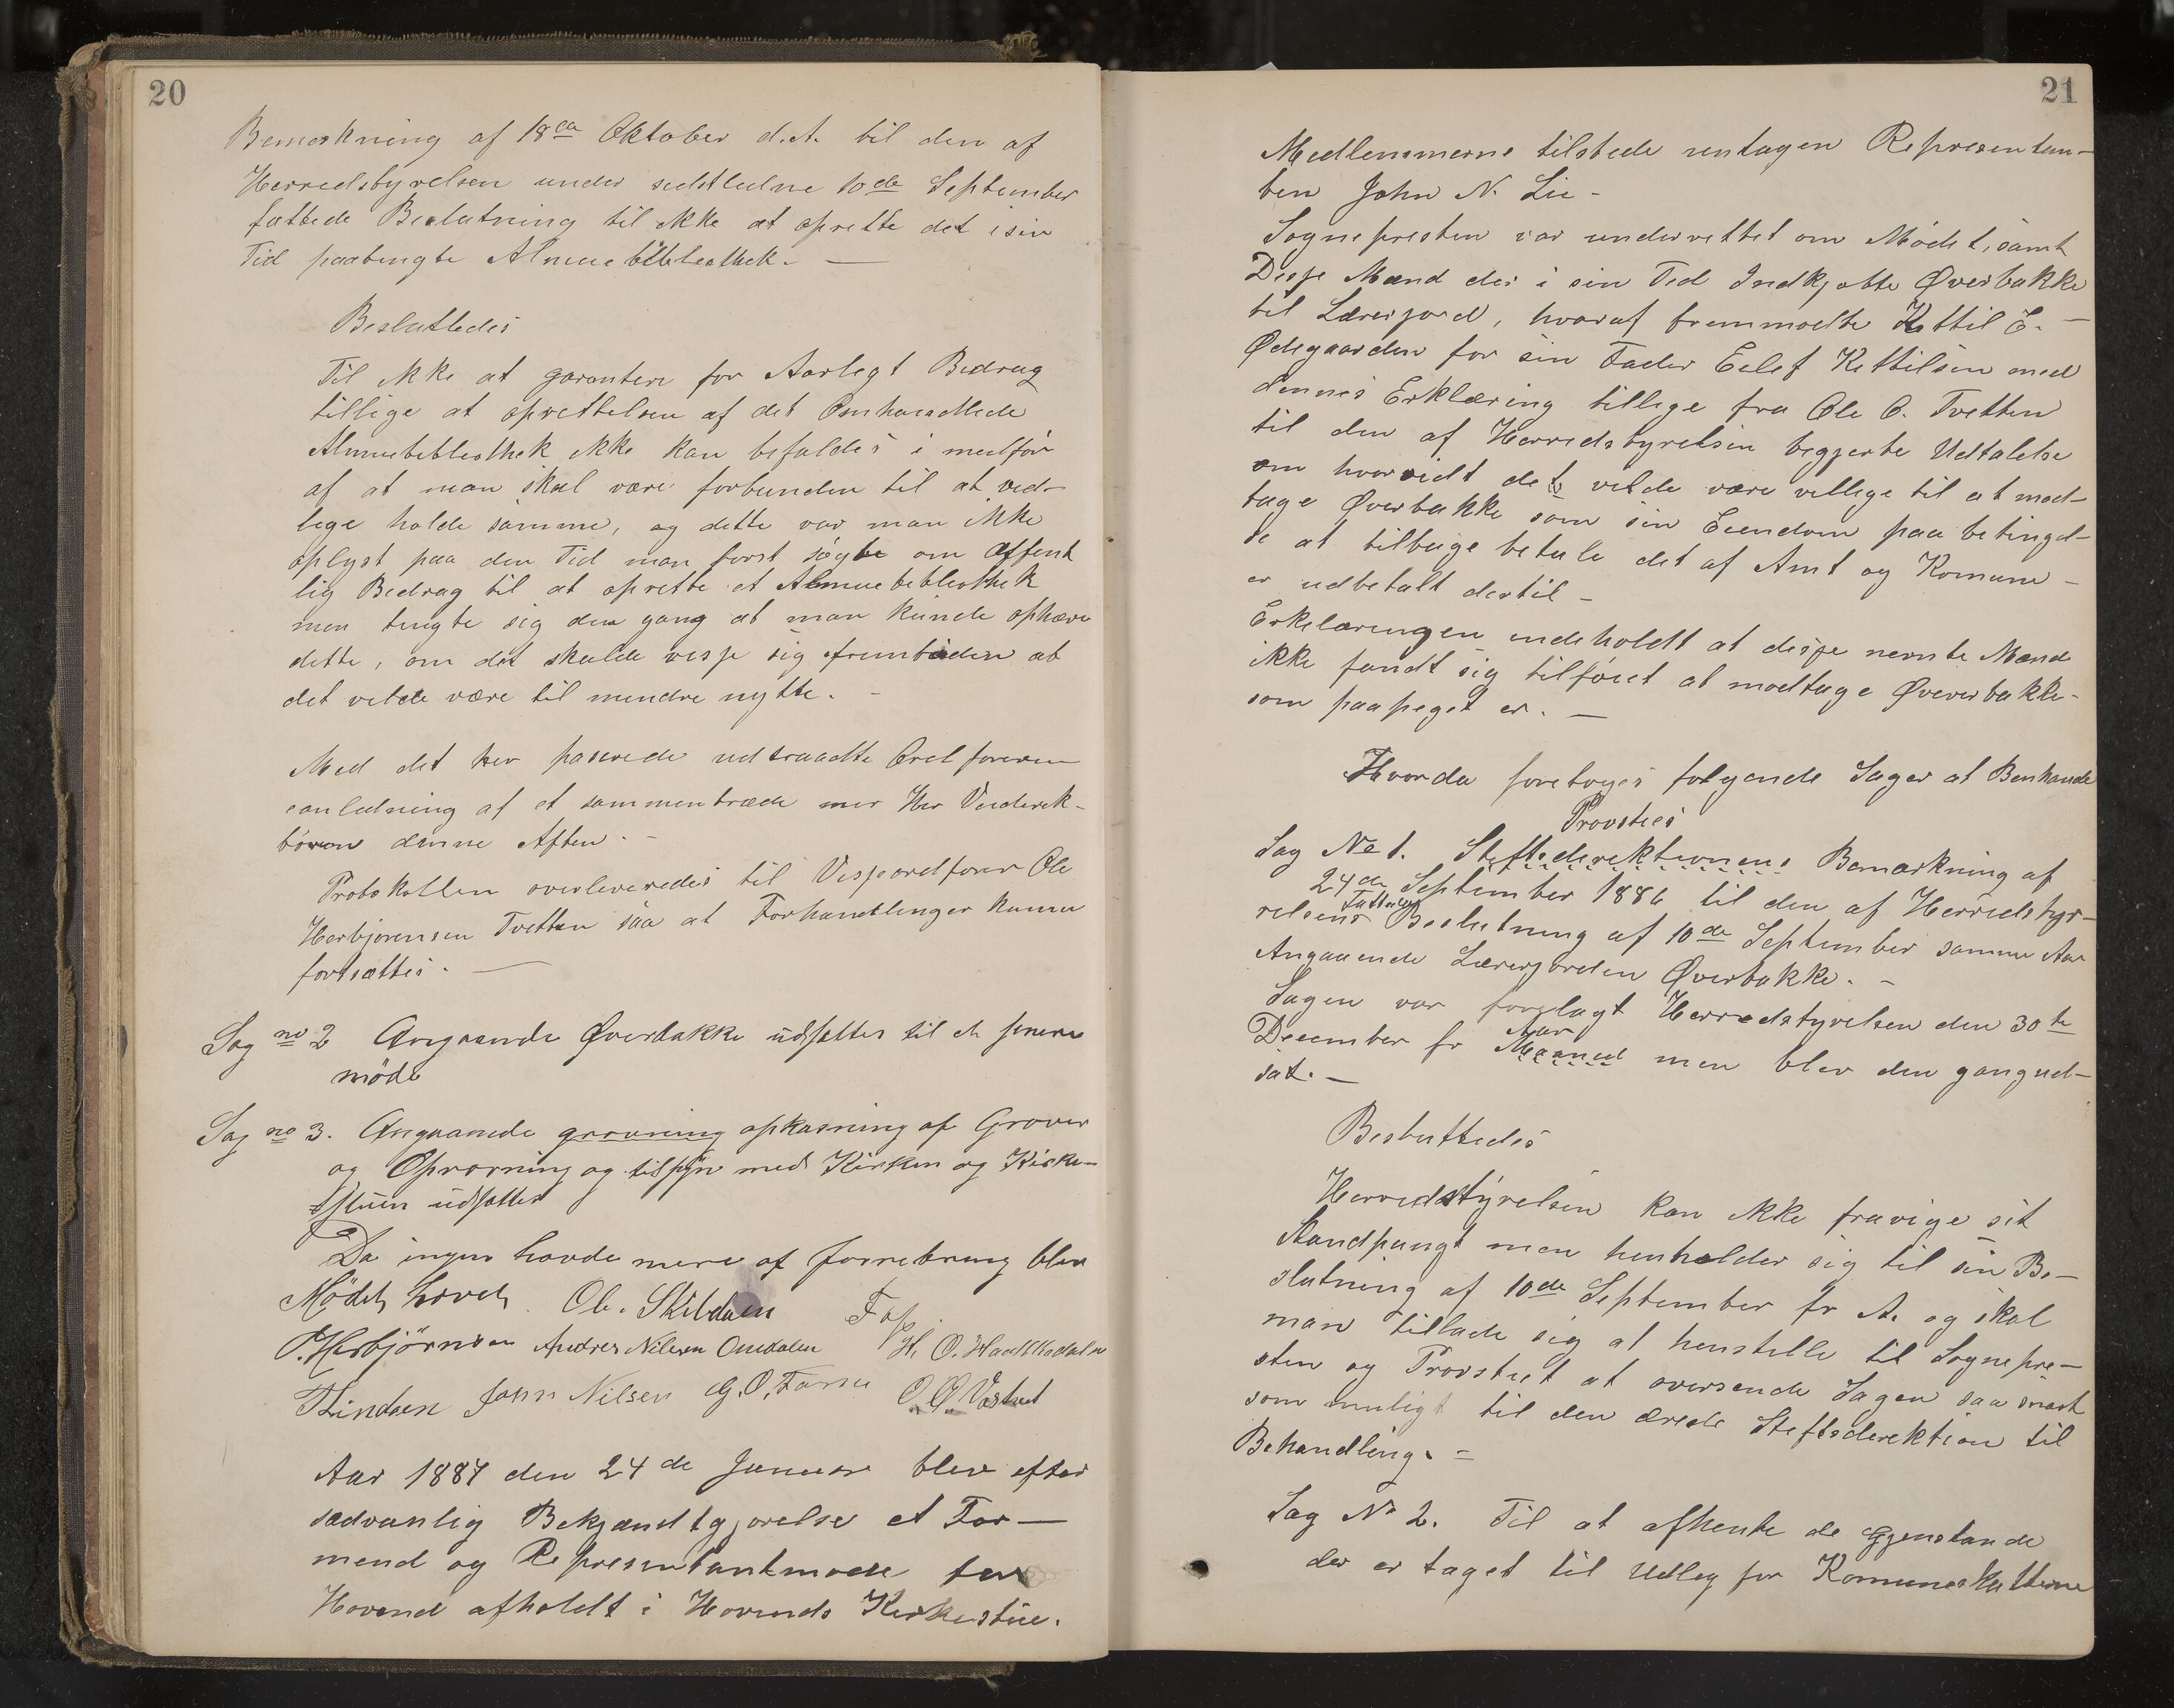 20
Bemerkning af 18de Oktober d.A. til den af
Herredsbyrelsen under sidstledne 10de September
fattede Beslutning til ikke at oprette det i sin
Tid paatengte Almuebibliothek. —
Besluttedes
Til ikke at garantere for Aarlegt Bedrag
tillige at oprettelsen af det Omhandlede
Almuebibliothek ikke kan befaldes i medfør
af at man skal være forbunden til at ved-
lige holde samme, og dette var man ikke
oplyst paa den Tid man først søgte om Offent
lig Bedrag til at oprette et Almuebibliothek
men tengte sig den gang at man kunde ophæve
dette, om det skulde vise sig fremtiden at
det vilde være til mindre nytte. –
Med det her paserede udtraadte Ordføreren
eanledning af et sammentræde mer Her Veiderek-
tøren denne Aften. –
Protokollen overleveredes til Viseordfører Ole
Herbjørensen Tvetten saa at Forhandlinger kunne
fortsættes. —
Sag no 2 Angaande Øverbakke udsættes til et senere
møde
Sag no 3. Angaaende gravning opkasning af Graver
og Opvarning og tilsyn med Kirken og Kirke-
stuen udsættes
Da ingen havde mere at forretning blev
Mødet hævet. Ol. Skildaen F
O. Herbjörnsen Andres Nilsen Omdalen H. O.
T Lindaen John Nilsen G. O. Farne O. O. Væstved
Aar 1887 den 24de Januar blev efter
sædvanlig Bekjendtgjørelse et For—
mend og Representantmøde for
Hovend afholdt i Hovends Kirkestue.
21
Medlemmerne tilstede untagen Representan-
ten John N. Lie -
Sognepresten var underrettet om Mødet, samt
Desse Mænd der i sin Tid Indkjøbte Øverbakke
til Lærerjord, hvoraf fremmødte Kettil E. —
Ødegaarden for sin Fader Eilef Kettilsen med
dennes Erklæring tillege fra Ole O. Tvetten
til den af Herredstyrelsen begjerte Udtalelse
om hvorvidt de vilde være villege til at mod-
tage Øverbakke som sin Eiendom paa betingel-
se at tilbage betale det af Amt og Komune -
er udbetalt dertil -
Erkelæringen indeholdt at desse nevnte Mænd
ikke fandt sig tilføiet at modtage Øververbakke-
som paapeget er. —
Hvorda foretoges følgende Sager at Benhande
Provsties
Sag No 1. Steftsderektionens Bemærkning af
24de September 1886 til den af Herredstyr-
Fattede
relsens Beslutning af 10de September samme Aar
Angaaende Lærerjorden Øverbakke. -
Sagen var forelagt Herredstyrelsen den 30te
Aar
December fr Maaned men blev den gang ud-
sat. —
Besluttedes
Herredstyrelsen kan ikke fravige sit
Standpungt men henholder sig til sin Be-
slutning af 10de September fr A. og skal
man tillade sig at henstille til Sognepre-
sten og Provstiet at oversende Sagen saa snart
som muligt til den ærede Steftsderektion til
Behandling. =
Sag No 2. Til at afhente de Gjenstande
der er taget til Udleg for Komuneskatterne